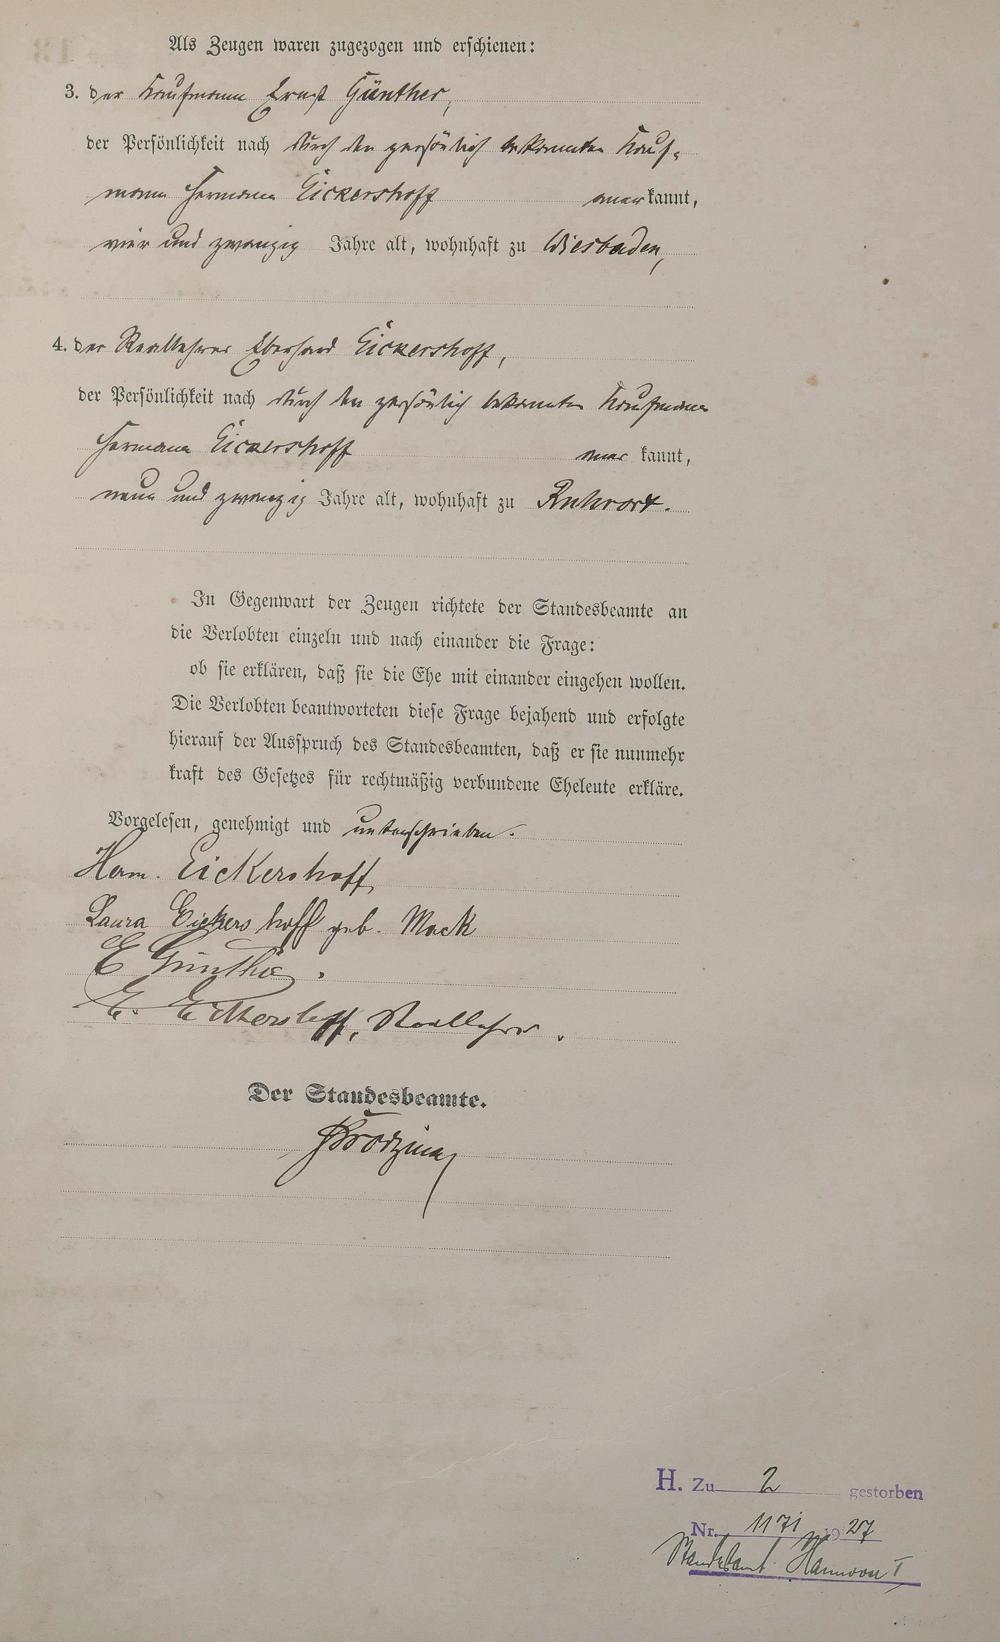 Als Zeugen waren zugezogen und erschienen:
3. der Kaufmann Ernst Günther,
der Persönlichkeit nach durch den persönlich bekannten Kauf-
mann Hermann Eickershoff anerkannt,
vier und zwanzig Jahre alt, wohnhaft zu Wiesbaden,
4. der Reallehrer Eberhard Eickershoff,
der Persönlichkeit nach durch den persönlich bekannten Kaufmann
Hermann Eickershoff aner kannt,
neun und zwanzig Jahre alt, wohnhaft zu Ruhrort.
In Gegenwart der Zeugen richtete der Standesbeamte an
die Verlobten einzeln und nach einander die Frage:
ob sie erklären, daß sie die Ehe mit einander eingehen wollen.
Die Verlobten beantworteten diese Frage bejahend und erfolgte
hierauf der Ausspruch des Standesbeamten, daß er sie nunmehr
kraft des Gesetzes für rechtmäßig verbundene Eheleute erkläre.
Vorgelesen, genehmigt und unterschrieben.
Herm. Eickershoff
Laura Eickershoff geb. Mack
E Günther.
E. Eickershoff, Reallehrer.
Der Standesbeamte.
H. Zu 2 gestorben
Nr. 1171 1927
Standesamt Hannover I